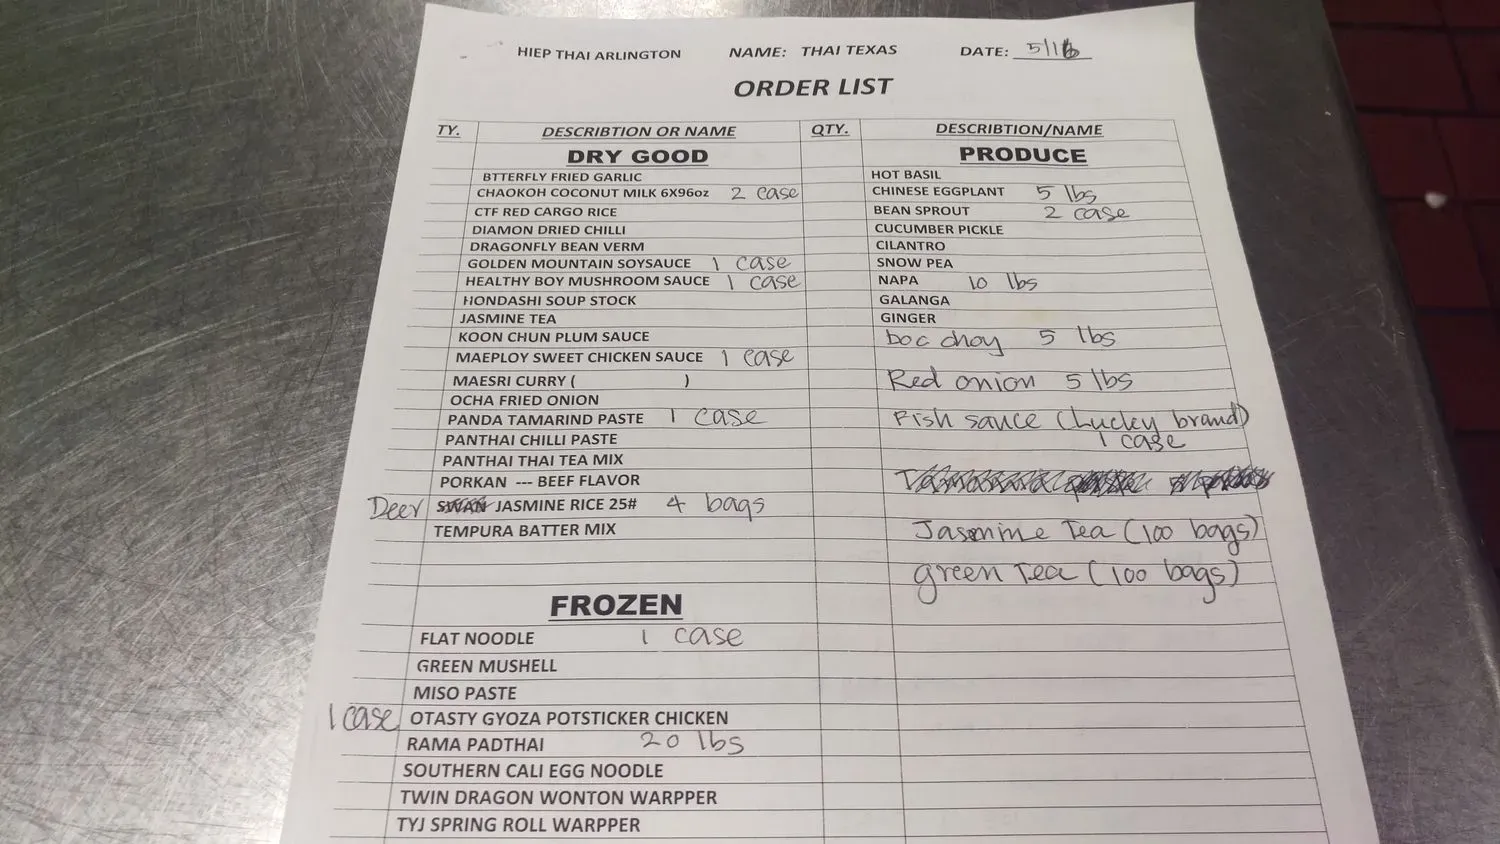 HIEP THAI ARLINGTON NAME: THAI TEXAS DATE: 5/16
ORDER LIST
TY. DESCRIBTION OR NAME QTY. DESCRIBTION/NAME
DRY GOOD
BTTERFLY FRIED GARLIC
CHAOKOH COCONUT MILK 6X96oz 2 case
CTF RED CARGO RICE
DIAMON DRIED CHILLI
DRAGONFLY BEAN VERM
GOLDEN MOUNTAIN SOYSAUCE 1 case
HEALTHY BOY MUSHROOM SAUCE 1 case
HONDASHI SOUP STOCK
JASMINE TEA
KOON CHUN PLUM SAUCE
MAEPLOY SWEET CHICKEN SAUCE 1 case
MAESRI CURRY ( )
OCHA FRIED ONION
PANDA TAMARIND PASTE 1 case
PANTHAI CHILLI PASTE
PANTHAI THAI TEA MIX
PORKAN --- BEEF FLAVOR
Deer SWAN JASMINE RICE 25# 4 bags
TEMPURA BATTER MIX
FROZEN
FLAT NOODLE 1 case
GREEN MUSHELL
MISO PASTE
1 case OTASTY GYOZA POTSTICKER CHICKEN
RAMA PADTHAI 20 lbs
SOUTHERN CALI EGG NOODLE
TWIN DRAGON WONTON WARPPER
TYJ SPRING ROLL WARPPER
PRODUCE
HOT BASIL
CHINESE EGGPLANT 5 lbs
BEAN SPROUT 2 case
CUCUMBER PICKLE
CILANTRO
SNOW PEA
NAPA 10 lbs
GALANGA
GINGER
boc choy 5 lbs
Red onion 5 lbs
Fish sauce (Lucky brand)
1 case
Jasmine Tea (100 bags)
green Tea (100 bags)